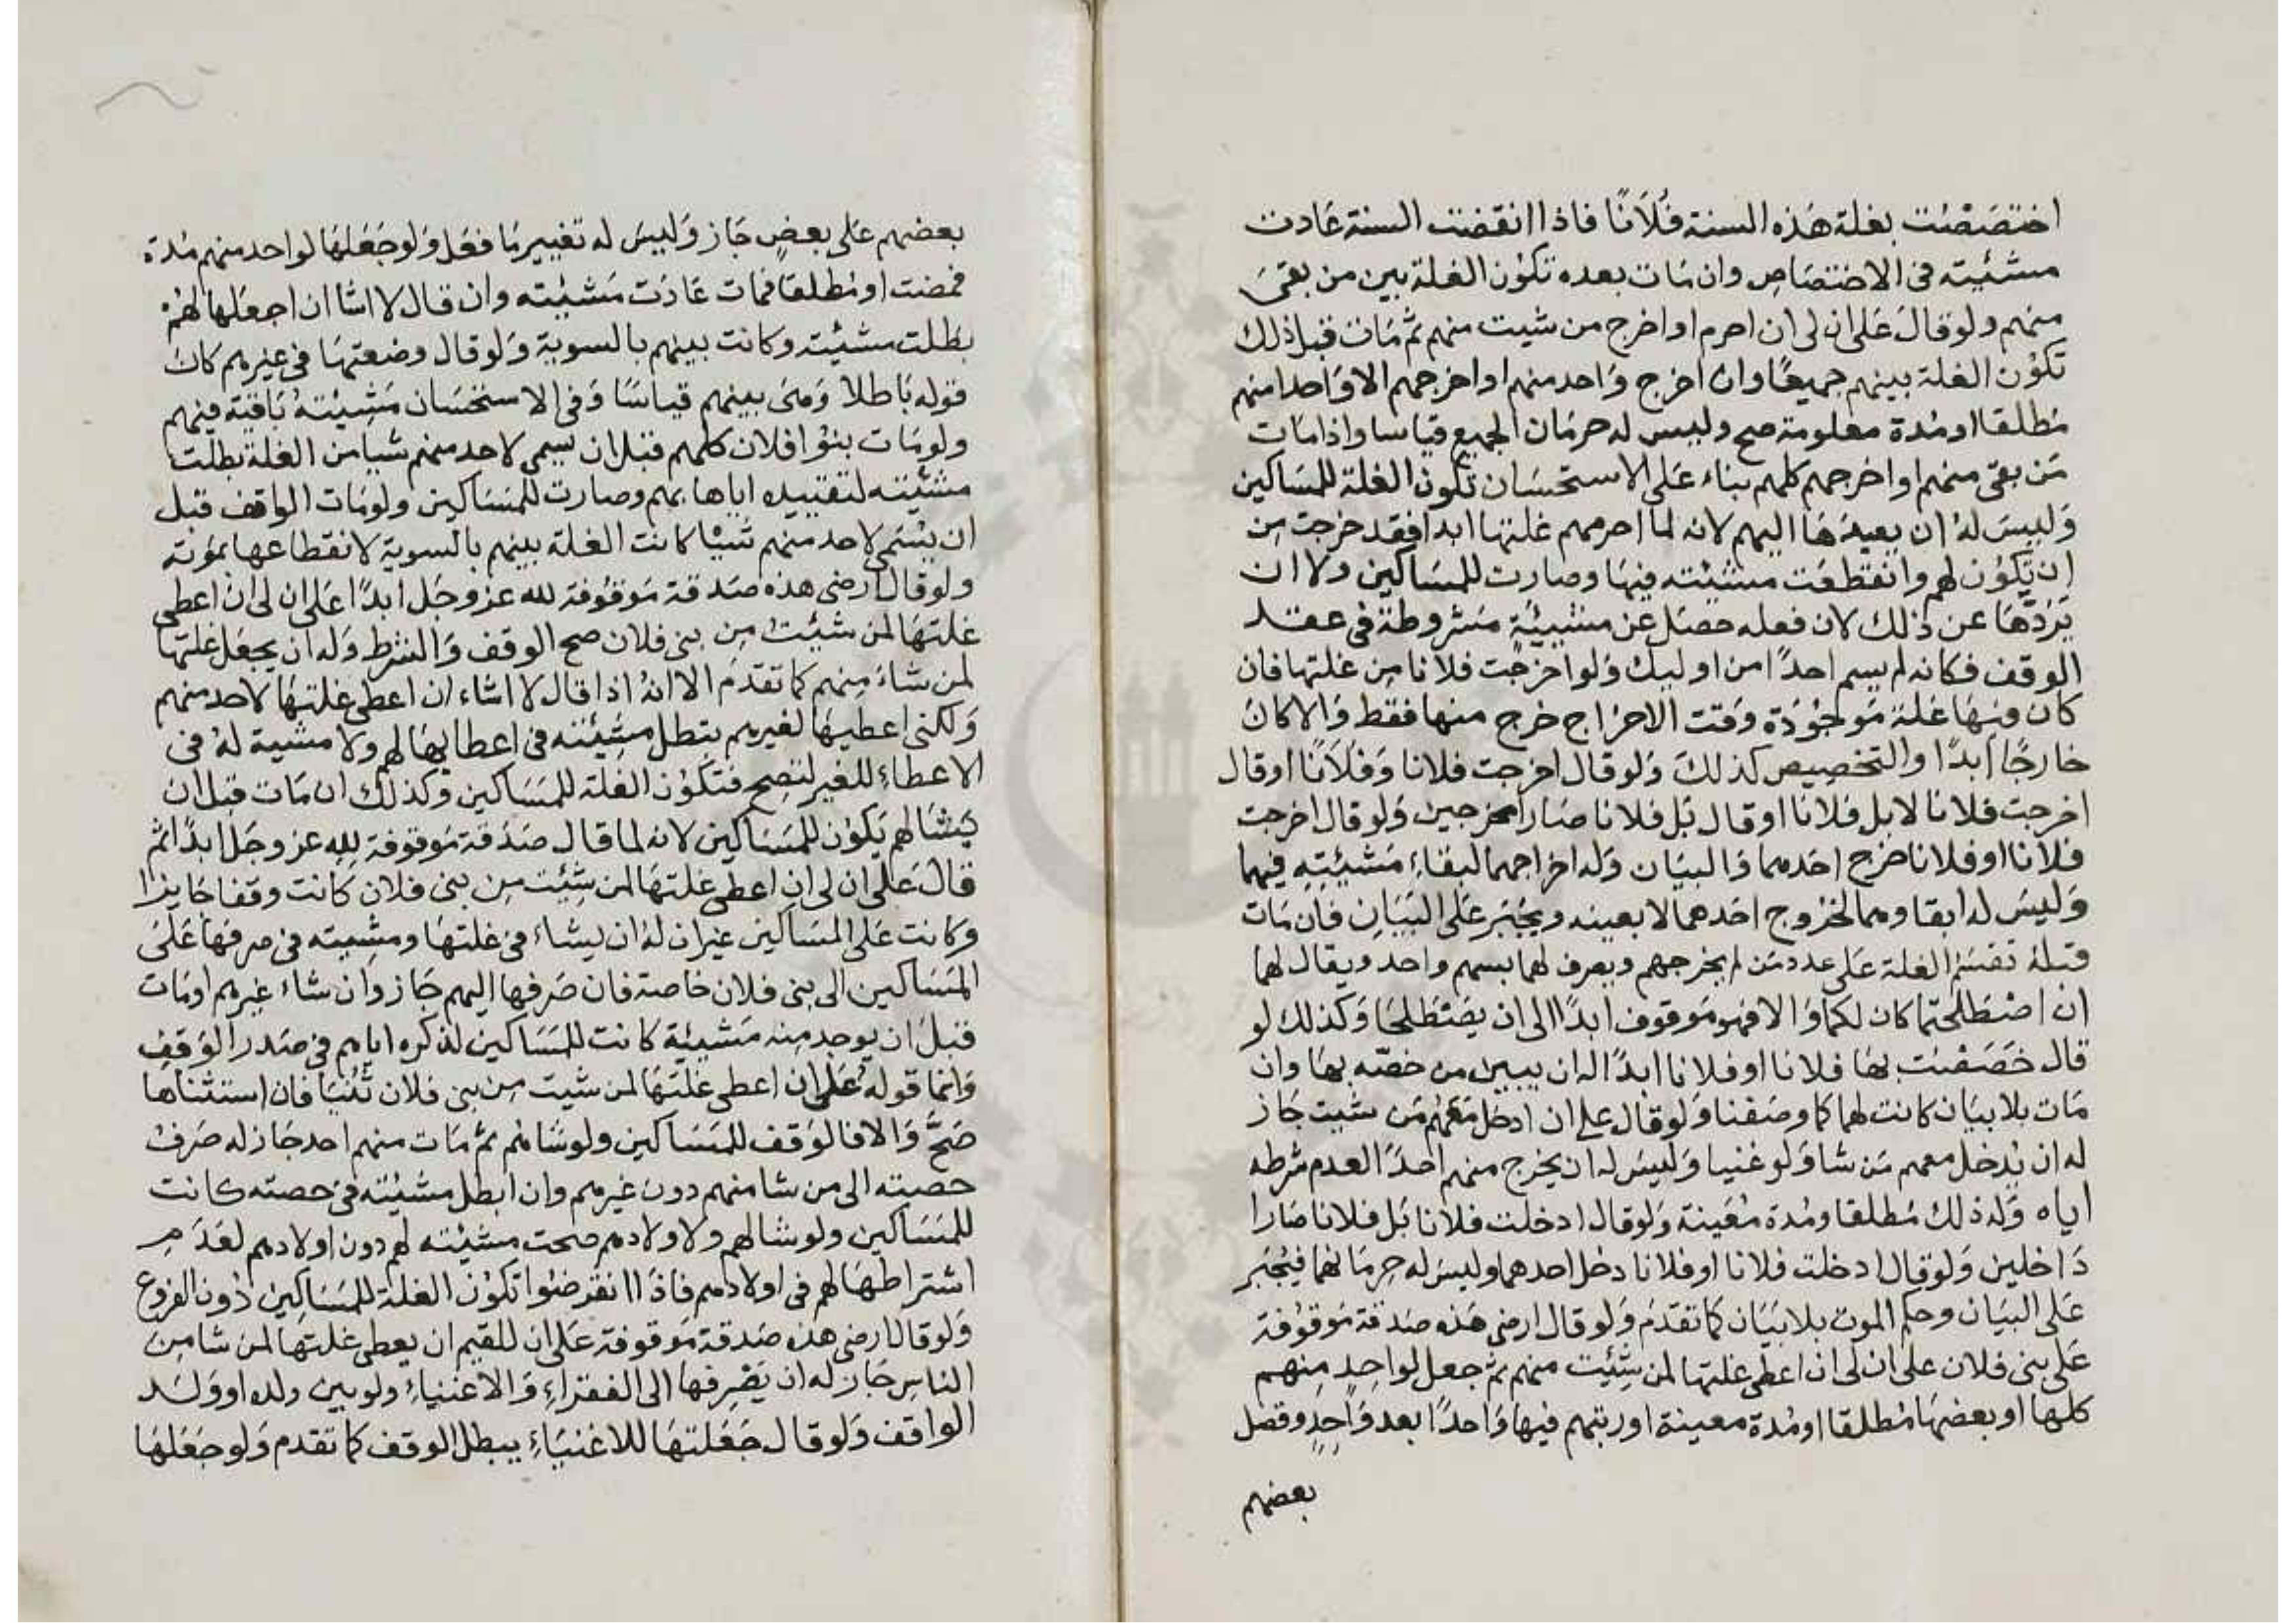 اختصصت بغلة هذه السنة فلانًا فاذا انقضت السنة عادت
مشئيته فى الاختصاص وان مات بعده تكون الغلة بين من بقى
منهم ولو قال على ان لى ان احرم او اخرج من شيت منهم ثم مات قبل ذلك
تكون الغلة بينهم جميعًا وان اخرج واحد منهم او اخرجهم الا واحدا منهم
مطلقا او مدة معلومة صح وليس له حرمان الجميع قياسا واذا مات
من بقى منهم او اخرجهم كلهم بناء على الاستحسان تكون الغلة للمساكين
وليس له ان يعيدها اليهم لانه لما احرمهم غلتها ابدا فقد خرجت من
ان تكون لهم وانقطعت مشئيته فيها وصارت للمساكين ولا ان
يردها عن ذلك لان فعله حصل عن مشيئة مشروطة فى عقد
الوقف فكانه لم يسم احدًا من اوليك ولو اخرجت فلانا من غلتها فان
كان فيها غلة موجودة وقت الاخراج خرج منها فقط والا كان
خارجًا ابدًا والتخصيص كذلك ولو قال اخرجت فلانا وفلانًا او قال
اخرجت فلانا لا بل فلانا او قال بل فلانا صارا مخرجين ولو قال اخرجت
فلانا او فلانا خرج احدهما والبيان وله اخراجهما لبقاء مشيئته فيهما
وليس له ابقاوهما لخروج احدهما لا بعينه ويجبر على البيان فان مات
قبله تقسم الغلة على عدد من لم يخرجهم ويصرف لهما بسهم واحد ويقال لهما
ان اصطلحتما كان لكما والا فهو موقوف ابدًا الى ان يصطلحا وكذلك لو
قال خصصت بها فلانا او فلانا ابدًا له ان يبين من خصه بها وان
مات بلا بيان كانت لهما كما وصفنا ولو قال على ان ادخل معهم من شيت جاز
له ان يدخل معهم من شا ولو غنيا وليس له ان يخرج منهم احدًا لعدم شرطه
اياه وله ذلك مطلقا ومدة معينة ولو قال ادخلت فلانا بل فلانا صارا
داخلين ولو قال ادخلت فلانا او فلانا دخل احدهما وليس له حرمانهما فيجبر
على البيان وحكم الموت بلا بيان كما تقدم ولو قال ارضى هذه صدقة موقوفة
على بنى فلان على ان لى ان اعطى غلتها لمن شئيت منهم ثم جعل لواحد منهم
كلها او بعضها مطلقا او مدة معينة او رتبهم فيها واحدًا بعد واحد وفضل
بعضهم
بعضهم على بعض جاز وليس له تغيير ما فعل ولو جعلها لواحد منهم مدة
فمضت او مطلقا فمات عادت مشئيته وان قال لا اشا ان اجعلها لهم
بطلت مشئيته وكانت بينهم بالسوية ولو قال وضعتها فى غيرهم كان
قوله باطلا وهى بينهم قياسًا وفى الاستحسان مشيئته باقية فيهم
ولو مات بنوا فلان كلهم قبل ان يسمى لاحد منهم شيا من الغلة بطلت
مشئيته لتقييده اياها بهم وصارت للمساكين ولو مات الواقف قبل
ان يسمى لاحد منهم شيا كانت الغلة بينهم بالسوية لانقطاعها بموته
ولو قال ارضى هذه صدقة موقوفة لله عز وجل ابدًا على ان لى ان اعطى
غلتها لمن شئيت من بنى فلان صح الوقف والشرط وله ان يجعل غلتها
لمن شاء منهم كما تقدم الا انه اذا قال لا اشاء ان اعطى غلتها لاحد منهم
ولكنى اعطيها لغيرهم بتطل مشئيته فى اعطايها لهم ولا مشية له فى
الاعطاء للغير لتصح فتكون الغلة للمساكين وكذلك ان مات قبل ان
يشا لهم يكون للمساكين لانه لما قال صدقة موقوفة لله عز وجل ابدًا ثم
قال على ان لى ان اعطى غلتها لمن شئيت من بنى فلان كانت وقفا جايزا
وكانت على المساكين غير ان له ان يشاء فى غلتها ومشيته فى صرفها على
المساكين الى بنى فلان خاصة فان صرفها اليهم جاز وان شاء غيرهم او مات
قبل ان يوجد منه مشيئة كانت للمساكين لذكره اياهم فى صدر الوقف
وانما قوله على ان اعطى غلتها لمن شيت من بنى فلان ثنيا فان استثناها
صح والا فالوقف للمساكين ولو شاهم ثم مات منهم احد جاز له صرف
حصته الى من شا منهم دون غيرهم وان ابطل مشئيته فى حصته كانت
للمساكين ولو شا لهم ولاولادهم صحت مشئيته لهم دون اولادهم لعدم
اشتراطها لهم فى اولادهم فاذا انقرضوا تكون الغلة للمساكين دون الفروع
ولو قال ارضى هذه صدقة موقوفة على ان للقيم ان يعطى غلتها لمن شا من
الناس جاز له ان يصرفها الى الفقراء والاغنياء ولو بين ولده او ولد
الواقف ولو قال جعلتها للاغنياء يبطل الوقف كما تقدم ولو جعلها